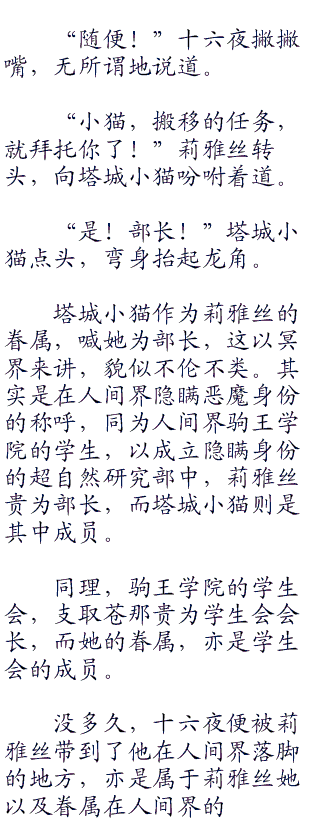 “随便！”十六夜撇撇
嘴，无所谓地说道。
“小猫，搬移的任务，
就拜托你了！”莉雅丝转
头，向塔城小猫吩咐着道。
“是！部长！”塔城小
猫点头，弯身抬起龙角。
塔城小猫作为莉雅丝的
眷属，喊她为部长，这以冥
界来讲，貌似不伦不类。其
实是在人间界隐瞒恶魔身份
的称呼，同为人间界驹王学
院的学生，以成立隐瞒身份
的超自然研究部中，莉雅丝
贵为部长，而塔城小猫则是
其中成员。
同理，驹王学院的学生
会，支取苍那贵为学生会会
长，而她的眷属，亦是学生
会的成员。
没多久，十六夜便被莉
雅丝带到了他在人间界落脚
的地方，亦是属于莉雅丝她
以及眷属在人间界的